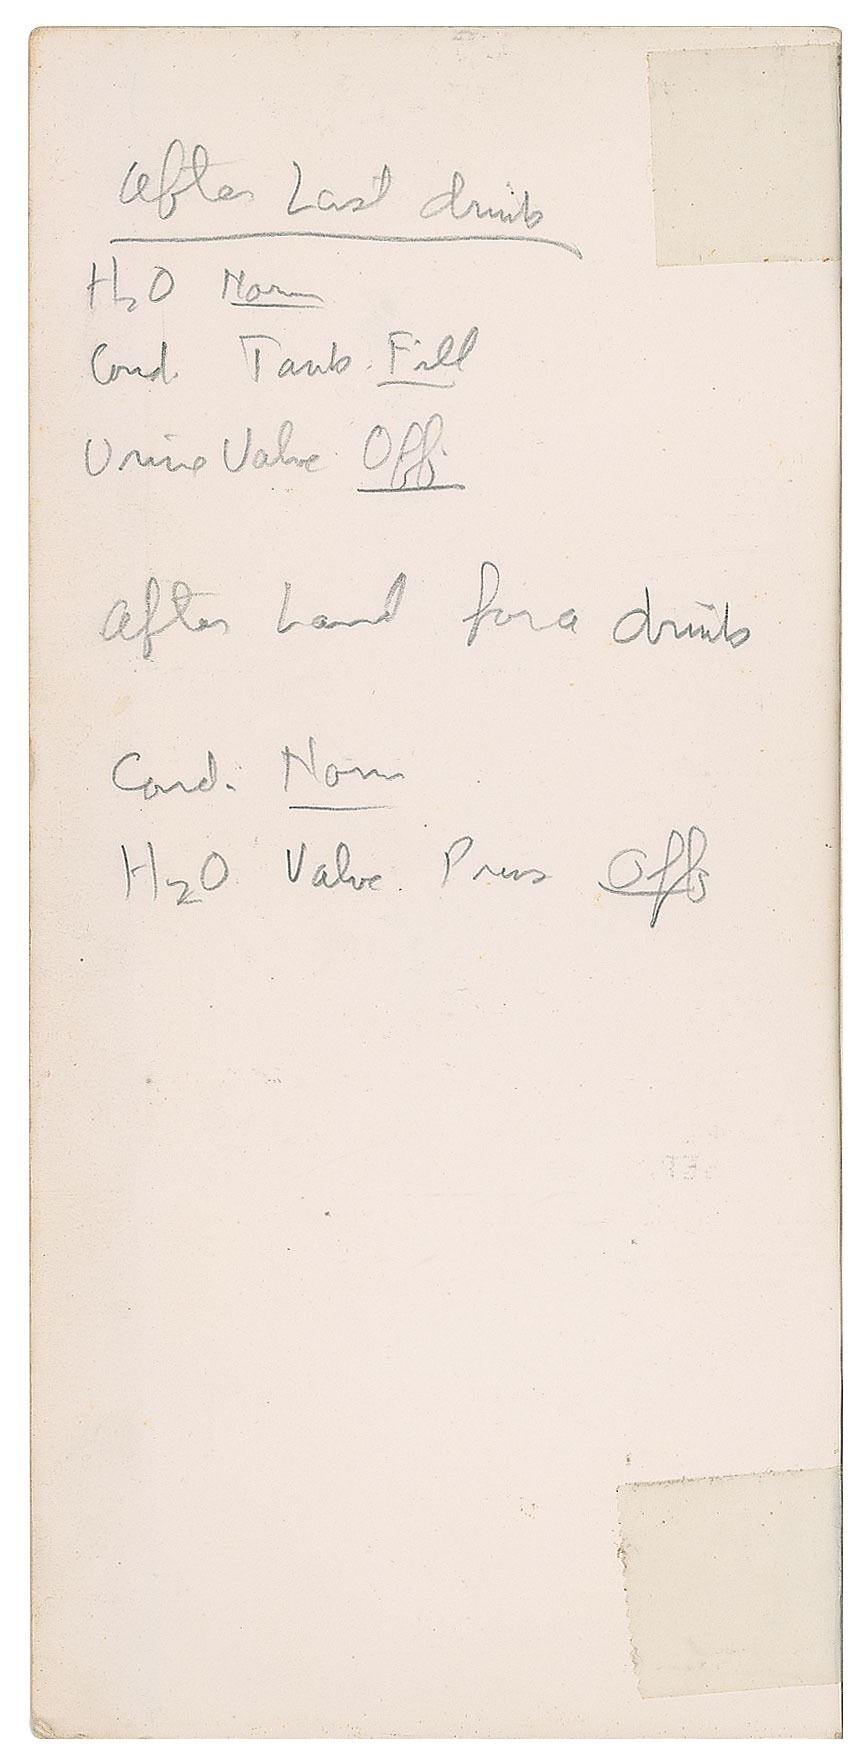 After Last drink
H₂O Norm
Cond. Tank. Fill
Urine Valve Off.
After Land for a drink
Cond. Norm
H₂O Valve. Press Off